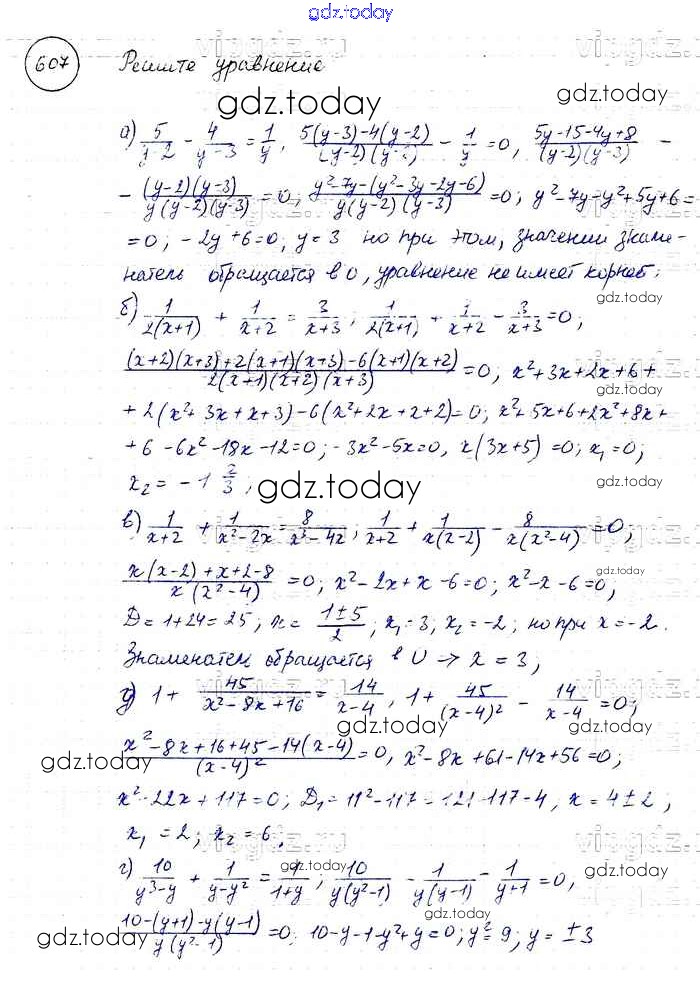 gdz.today
607 Решите уравнение
а) 5/(y-2) - 4/(y-3) = 1/y, (5(y-3)-4(y-2))/((y-2)(y-3)) - 1/y = 0, (5y-15-4y+8)/((y-2)(y-3)) -
- ((y-2)(y-3))/(y(y-2)(y-3)) = 0; (y²-7y-(y²-3y-2y-6))/(y(y-2)(y-3)) = 0; y²-7y-y²+5y+6=
=0; -2y+6=0; y=3 но при этом, значении знаме-
натель обращается в 0, уравнение не имеет корней;
б) 1/(2(x+1)) + 1/(x+2) = 3/(x+3); 1/(2(x+1)) + 1/(x+2) - 3/(x+3) = 0;
((x+2)(x+3)+2(x+1)(x+3)-6(x+1)(x+2))/(2(x+1)(x+2)(x+3)) = 0; x²+3x+2x+6+
+2(x²+3x+x+3)-6(x²+2x+x+2)=0; x²+5x+6+2x²+8x+
+6-6x²-18x-12=0; -3x²-5x=0, x(3x+5)=0; x₁=0;
x₂ = -1 2/3;
в) 1/(x+2) + 1/(x²-2x) = 8/(x³-4x); 1/(x+2) + 1/(x(x-2)) - 8/(x(x²-4)) = 0,
(x(x-2)+x+2-8)/(x(x²-4)) = 0; x²-2x+x-6=0; x²-x-6=0,
D=1+24=25, x= (1±5)/2; x₁=3; x₂=-2; но при x=-2.
Знаменатель обращается в 0 → x=3;
1+ 45/(x²-8x+16) = 14/(x-4), 1+ 45/(x-4)² - 14/(x-4) = 0;
(x²-8x+16+45-14(x-4))/(x-4)² = 0, x²-8x+61-14x+56=0;
x²-22x+117=0; D₁=11²-117=121-117=4, x=4±2;
x₁=2; x₂=6;
г) 10/(y³-y) + 1/(y-y²) = 1/(1+y); 10/(y(y²-1)) - 1/(y(y-1)) - 1/(y+1) = 0,
(10-(y+1)-y(y-1))/(y(y²-1)) = 0. 10-y-1-y²+y=0; y²=9; y=±3